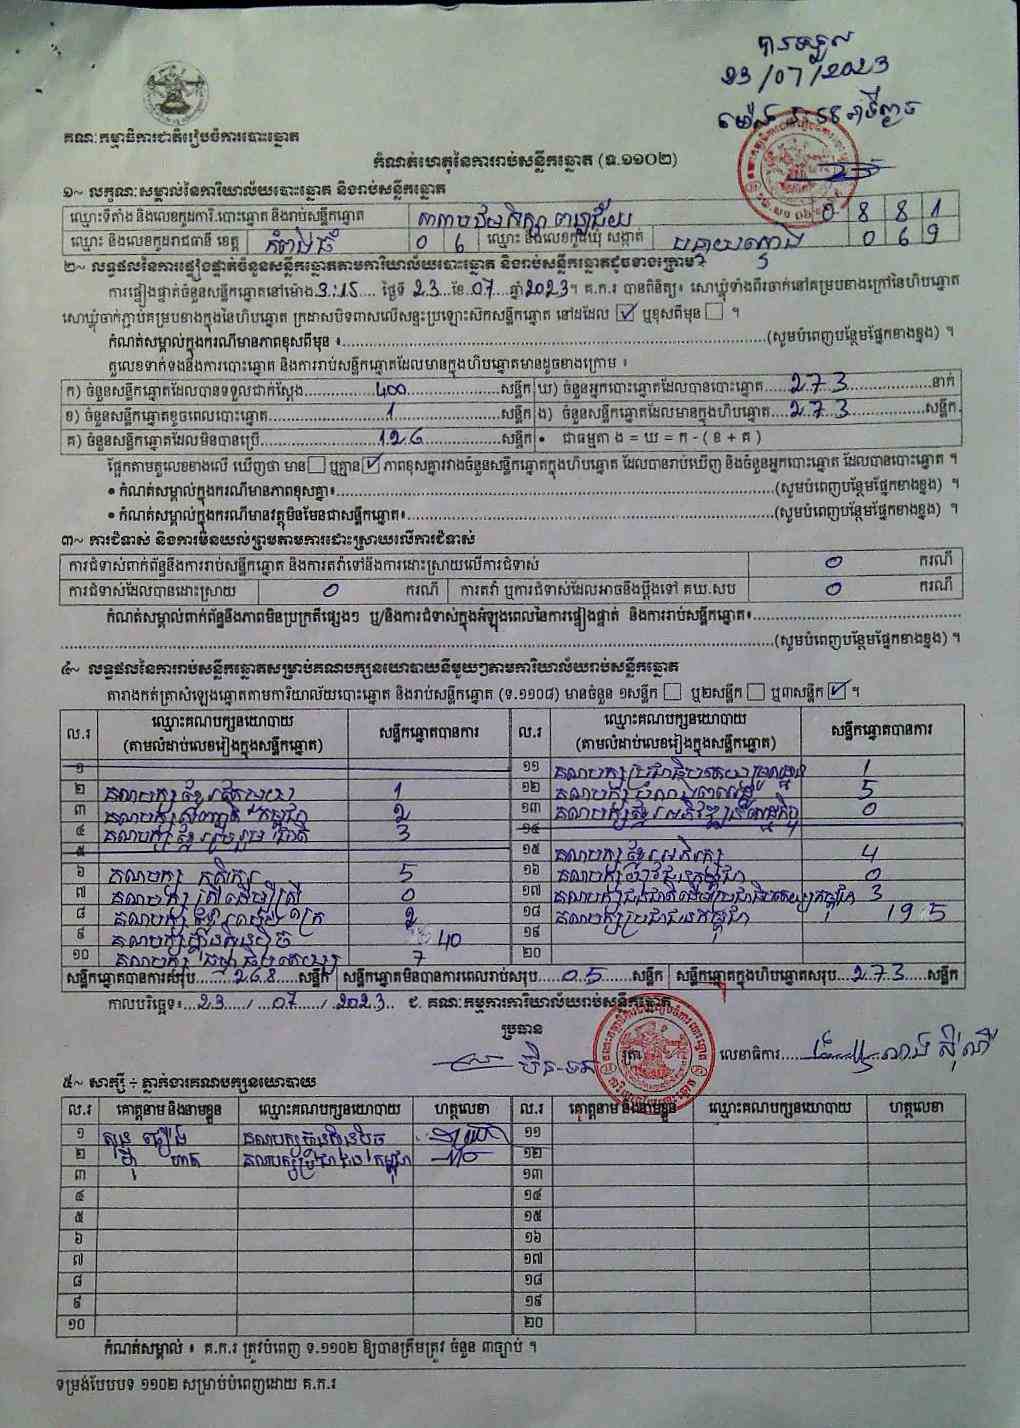 បានទទួល
23/07/2023
គណៈកម្មាធិការជាតិរៀបចំការបោះឆ្នោត
កំណត់ហេតុនៃការរាប់សន្លឹកឆ្នោត (ទ.១១០២)
១~ លក្ខណៈសម្គាល់នៃការិយាល័យបោះឆ្នោត និងរាប់សន្លឹកឆ្នោត
ឈ្មោះទីតាំង និងលេខកូដការិ.បោះឆ្នោត និងរាប់សន្លឹកឆ្នោត 0 8 8 1
ឈ្មោះ និងលេខកូដរាជធានី ខេត្ត កំពង់ធំ 0 6 ឈ្មោះ និងលេខកូដឃុំ សង្កាត់ 0 6 9
២~ លទ្ធផលនៃការផ្ទៀងផ្ទាត់ចំនួនសន្លឹកឆ្នោតតាមការិយាល័យបោះឆ្នោត និងរាប់សន្លឹកឆ្នោតដូចខាងក្រោម៖
ការផ្ទៀងផ្ទាត់ចំនួនសន្លឹកឆ្នោតនៅម៉ោង 3:15 ថ្ងៃទី 23 ខែ 07 ឆ្នាំ 2023។ គ.ក.រ បានពិនិត្យ៖ សោឃ្លុំទាំងពីរចាក់នៅគម្របខាងក្រៅនៃហិបឆ្នោត
សោឃ្លុំចាក់ភ្ជាប់គម្របខាងក្នុងនៃហិបឆ្នោត ក្រដាសបិទពាសលើសន្ទះប្រឡោះស៊កសន្លឹកឆ្នោត នៅដដែល ☑ ឬខុសពីមុន ☐ ។
កំណត់សម្គាល់ក្នុងករណីមានភាពខុសពីមុន ៖ (សូមបំពេញបន្ថែមផ្នែកខាងខ្នង) ។
តួលេខទាក់ទងនឹងការបោះឆ្នោត និងការរាប់សន្លឹកឆ្នោតដែលមានក្នុងហិបឆ្នោតមានដូចខាងក្រោម ៖
ក) ចំនួនសន្លឹកឆ្នោតដែលបានទទួលជាក់ស្តែង 400 សន្លឹក ឃ) ចំនួនអ្នកបោះឆ្នោតដែលបានបោះឆ្នោត 273 នាក់
ខ) ចំនួនសន្លឹកឆ្នោតខូចពេលបោះឆ្នោត 1 សន្លឹក ង) ចំនួនសន្លឹកឆ្នោតដែលមានក្នុងហិបឆ្នោត 273 សន្លឹក
គ) ចំនួនសន្លឹកឆ្នោតដែលមិនបានប្រើ 126 សន្លឹក • ជាធម្មតា ង = ឃ = ក - ( ខ + គ )
ផ្អែកតាមតួលេខខាងលើ ឃើញថា មាន ☐ ឬគ្មាន ☑ ភាពខុសគ្នារវាងចំនួនសន្លឹកឆ្នោតក្នុងហិបឆ្នោត ដែលបានរាប់ឃើញ និងចំនួនអ្នកបោះឆ្នោត ដែលបានបោះឆ្នោត ។
• កំណត់សម្គាល់ក្នុងករណីមានភាពខុសគ្នា៖ (សូមបំពេញបន្ថែមផ្នែកខាងខ្នង) ។
• កំណត់សម្គាល់ក្នុងករណីមានវត្ថុមិនមែនជាសន្លឹកឆ្នោត៖ (សូមបំពេញបន្ថែមផ្នែកខាងខ្នង) ។
៣~ ការជំទាស់ និងការមិនយល់ព្រមតាមការដោះស្រាយលើការជំទាស់
ការជំទាស់ពាក់ព័ន្ធនឹងការរាប់សន្លឹកឆ្នោត និងការតវ៉ាទៅនឹងការដោះស្រាយលើការជំទាស់ 0 ករណី
ការជំទាស់ដែលបានដោះស្រាយ 0 ករណី ការតវ៉ា ឬការជំទាស់ដែលអាចនឹងប្តឹងទៅ គឃ.សប 0 ករណី
កំណត់សម្គាល់ពាក់ព័ន្ធនឹងភាពមិនប្រក្រតីផ្សេងៗ ឬ/និងការជំទាស់ក្នុងអំឡុងពេលនៃការផ្ទៀងផ្ទាត់ និងការរាប់សន្លឹកឆ្នោត៖
(សូមបំពេញបន្ថែមផ្នែកខាងខ្នង) ។
៤~ លទ្ធផលនៃការរាប់សន្លឹកឆ្នោតសម្រាប់គណបក្សនយោបាយនីមួយៗតាមការិយាល័យរាប់សន្លឹកឆ្នោត
តារាងកត់ត្រាសំឡេងឆ្នោតតាមការិយាល័យបោះឆ្នោត និងរាប់សន្លឹកឆ្នោត (ទ.១១០៨) មានចំនួន ១សន្លឹក ☐ ឬ២សន្លឹក ☐ ឬ៣សន្លឹក ☑ ។
ល.រ ឈ្មោះគណបក្សនយោបាយ (តាមលំដាប់លេខរៀងក្នុងសន្លឹកឆ្នោត) សន្លឹកឆ្នោតបានការ ល.រ ឈ្មោះគណបក្សនយោបាយ (តាមលំដាប់លេខរៀងក្នុងសន្លឹកឆ្នោត) សន្លឹកឆ្នោតបានការ
១ ១១ 1
២ 1 ១២ 5
៣ គណបក្ស កម្ពុជា 2 ១៣ 0
៤ គណបក្សខ្មែររួបរួមជាតិ 3 ១៤
៥ ១៥ គណបក្សខ្មែរអភិរក្ស 4
៦ គណបក្ស កសិករ 5 ១៦ គណបក្សយុវជនកម្ពុជា 0
៧ គណបក្ស ស្ត្រីដើម្បីស្ត្រី 0 ១៧ 3
៨ 2 ១៨ គណបក្សប្រជាជនកម្ពុជា 195
៩ គណបក្សហ្វ៊ុនស៊ិនប៉ិច 40 ១៩
១០ 7 ២០
សន្លឹកឆ្នោតបានការសរុប 268 សន្លឹក សន្លឹកឆ្នោតមិនបានការពេលរាប់សរុប 05 សន្លឹក សន្លឹកឆ្នោតក្នុងហិបឆ្នោតសរុប 273 សន្លឹក
កាលបរិច្ឆេទ៖ 23 / 07 / 2023 ជ. គណៈកម្មការការិយាល័យរាប់សន្លឹកឆ្នោត
ប្រធាន
ត្រា លេខាធិការ
៥~ សាក្សី ÷ ភ្នាក់ងារគណបក្សនយោបាយ
ល.រ គោត្តនាម និងនាមខ្លួន ឈ្មោះគណបក្សនយោបាយ ហត្ថលេខា ល.រ គោត្តនាម និងនាមខ្លួន ឈ្មោះគណបក្សនយោបាយ ហត្ថលេខា
១ គណបក្សហ្វ៊ុនស៊ិនប៉ិច ១១
២ គណបក្សប្រជាជនកម្ពុជា ១២
៣ ១៣
៤ ១៤
៥ ១៥
៦ ១៦
៧ ១៧
៨ ១៨
៩ ១៩
១០ ២០
កំណត់សម្គាល់ ៖ គ.ក.រ ត្រូវបំពេញ ទ.១១០២ ឱ្យបានត្រឹមត្រូវ ចំនួន ៣ច្បាប់ ។
ទម្រង់បែបបទ ១១០២ សម្រាប់បំពេញដោយ គ.ក.រ